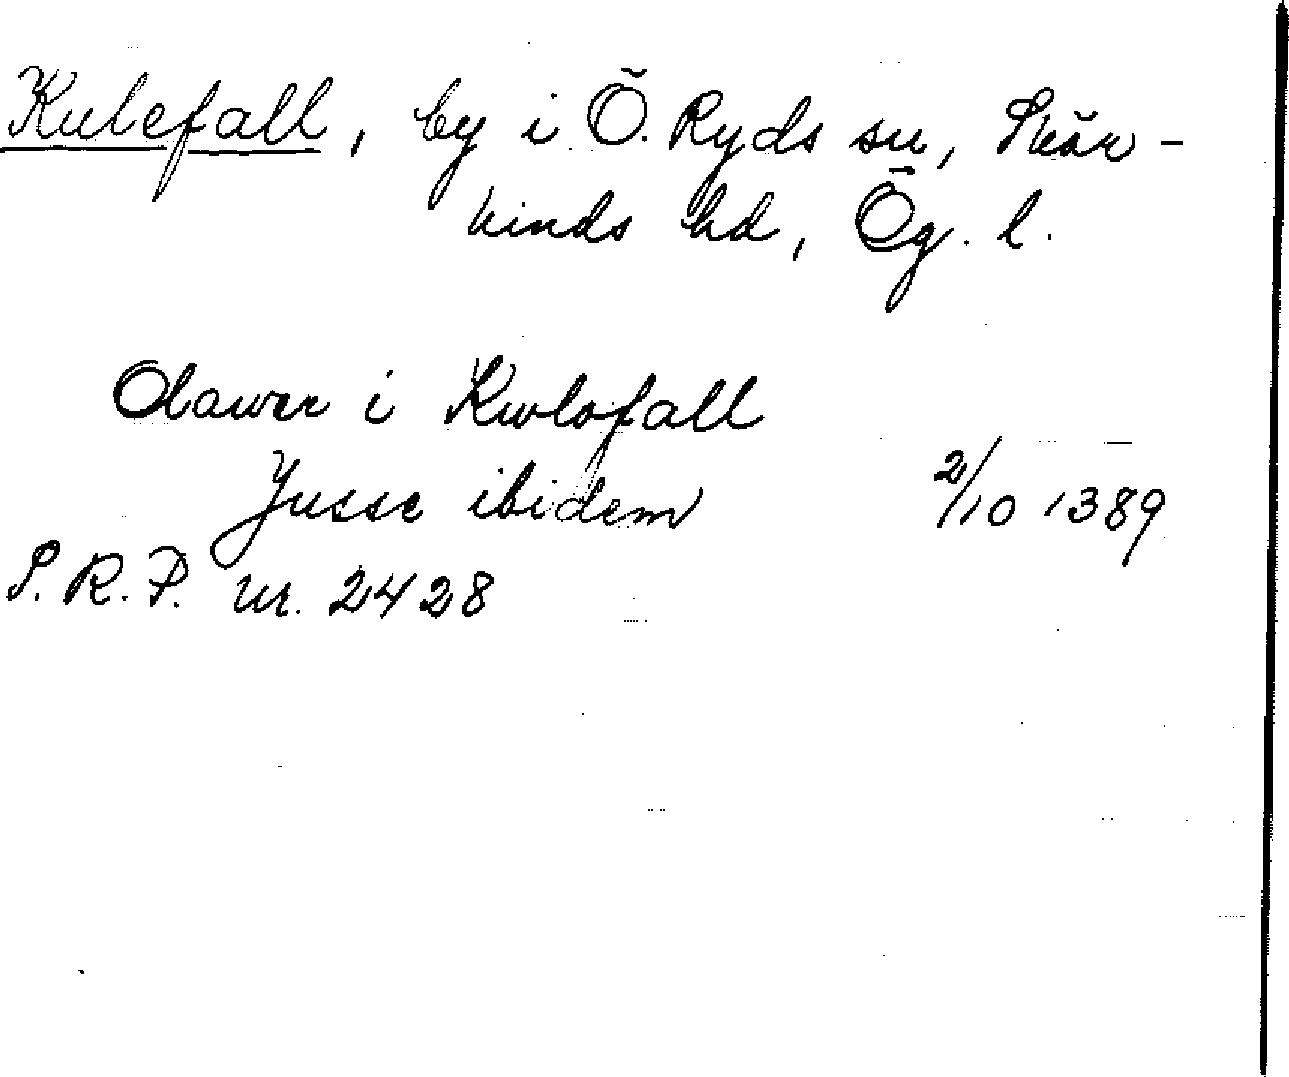 Kulefall, by i Ö. Ryds sn, Skär-
kinds hd, Ög. l.
Olawer i Kwlofall
Jusse ibidem 2/10 1389
S.R.P. nr. 2428